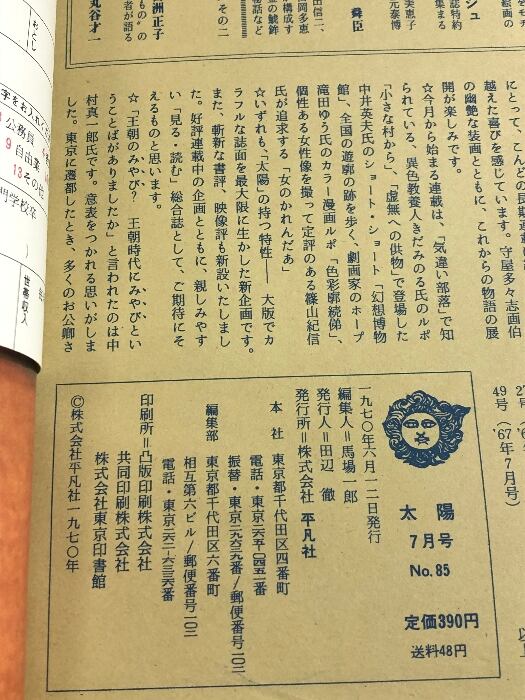 にとって、こんどの長
越えた喜びを感じています。守屋多々志画伯
の幽艶な装画とともに、これからの物語の展
開が楽しみです。
☆今月から始まる連載は、「気違い部落」で知
られている、異色教養人きだみのる氏のルポ
「小さな村から」、「虚無への供物」で登場した
中井英夫氏のショート・ショート「幻想博物
館」、全国の遊廓の跡を歩く、劇画家のホープ
滝田ゆう氏のカラー漫画ルポ「色彩廓続俤」、
個性ある女性像を撮って定評のある篠山紀信
氏が追求する「女のかれんだぁ」
☆いずれも、「太陽」の持つ特性――大版でカ
ラフルな誌面を最大限に生かした新企画です。
また、斬新な書評、映像評も新設いたしまし
た。好評連載中の企画とともに、親しみやす
い「見る・読む」総合誌として、ご期待にそ
えるものと思います。
☆「王朝のみやび? 王朝時代にみやびとい
うことばがありましたか」と言われたのは中
村真一郎氏です。意表をつかれる思いがしま
した。東京に遷都したとき、多くのお公卿さ
舜臣
洲正子
丸谷才一
その二
公務員
9 自由業
13 その他
世帯収入
49号('67年7月号)
太陽
7月号
No.85
定価390円
送料48円
一九七〇年六月一二日発行
編集人=馬場一郎
発行人=田辺 徹
発行所=株式会社 平凡社
本社 東京都千代田区四番町
編集部 東京都千代田区六番町
相互第六ビル/郵便番号一〇二
印刷所=凸版印刷株式会社
共同印刷株式会社
株式会社東京印書館
©株式会社平凡社一九七〇年